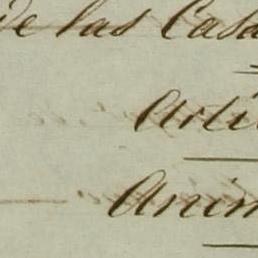 de las Casa
Artí
Anim